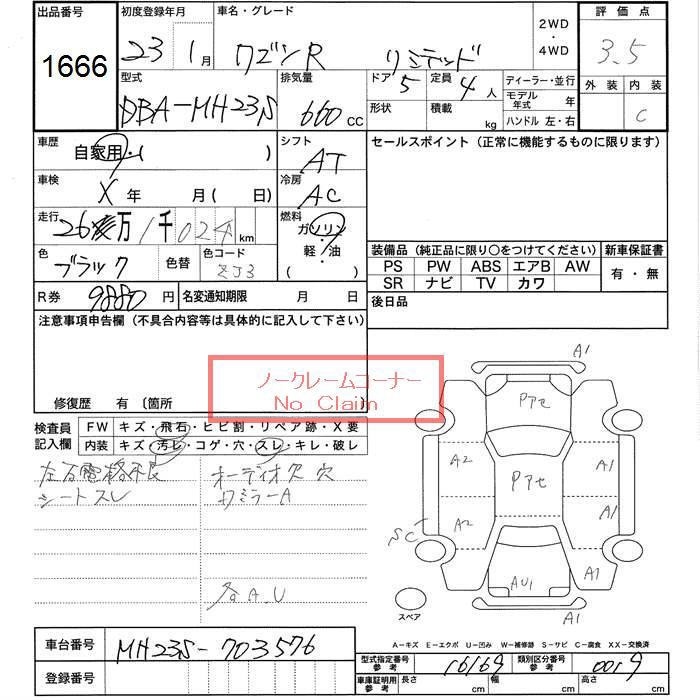 出品番号 初度登録年月 車名・グレード 2WD ・ 4WD 評価点
1666 23年 1月 ワゴンR リミテッド 3.5
外装 内装
C
型式 排気量 ドア 定員 ディーラー・並行
DBA-MH23S 660cc 5 4人 モデル年式 年
形状 積載 kg ハンドル 左・右
車歴 シフト セールスポイント (正常に機能するものに限ります)
自家用・( ) AT
車検 冷房
X年 月( 日) AC
走行 燃料
26万1千024km ガソリン
軽・油
( )
色 色替 色コード
ブラック ZJ3
装備品 (純正品に限り○をつけてください) 新車保証書
PS PW ABS エアB AW 有・無
SR ナビ TV カワ
R券 9880円 名変通知期限 月 日 後日品
注意事項申告欄 (不具合内容等は具体的に記入して下さい)
ノークレームコーナー
No Claim
修復歴 有 〔箇所
検査員記入欄 FW キズ・飛石・ヒビ割・リペア跡・X要
内装 キズ・汚レ・コゲ・穴・スレ・キレ・破レ
左右電格不良 オーディオ欠 穴
シートスレ 各A.U
A1
Pアセ
A2 A1
Pアセ
A1
SC A2
AU1 A1
A1
スペア
A=キズ E=エクボ U=凹み W=補修跡 S=サビ C=腐食 XX=交換済
車台番号 MH23S-703576
型式指定番号 参考 16169 類別区分番号 参考 0019
登録番号
車庫証明用 参考 長さ cm 幅 cm 高さ cm